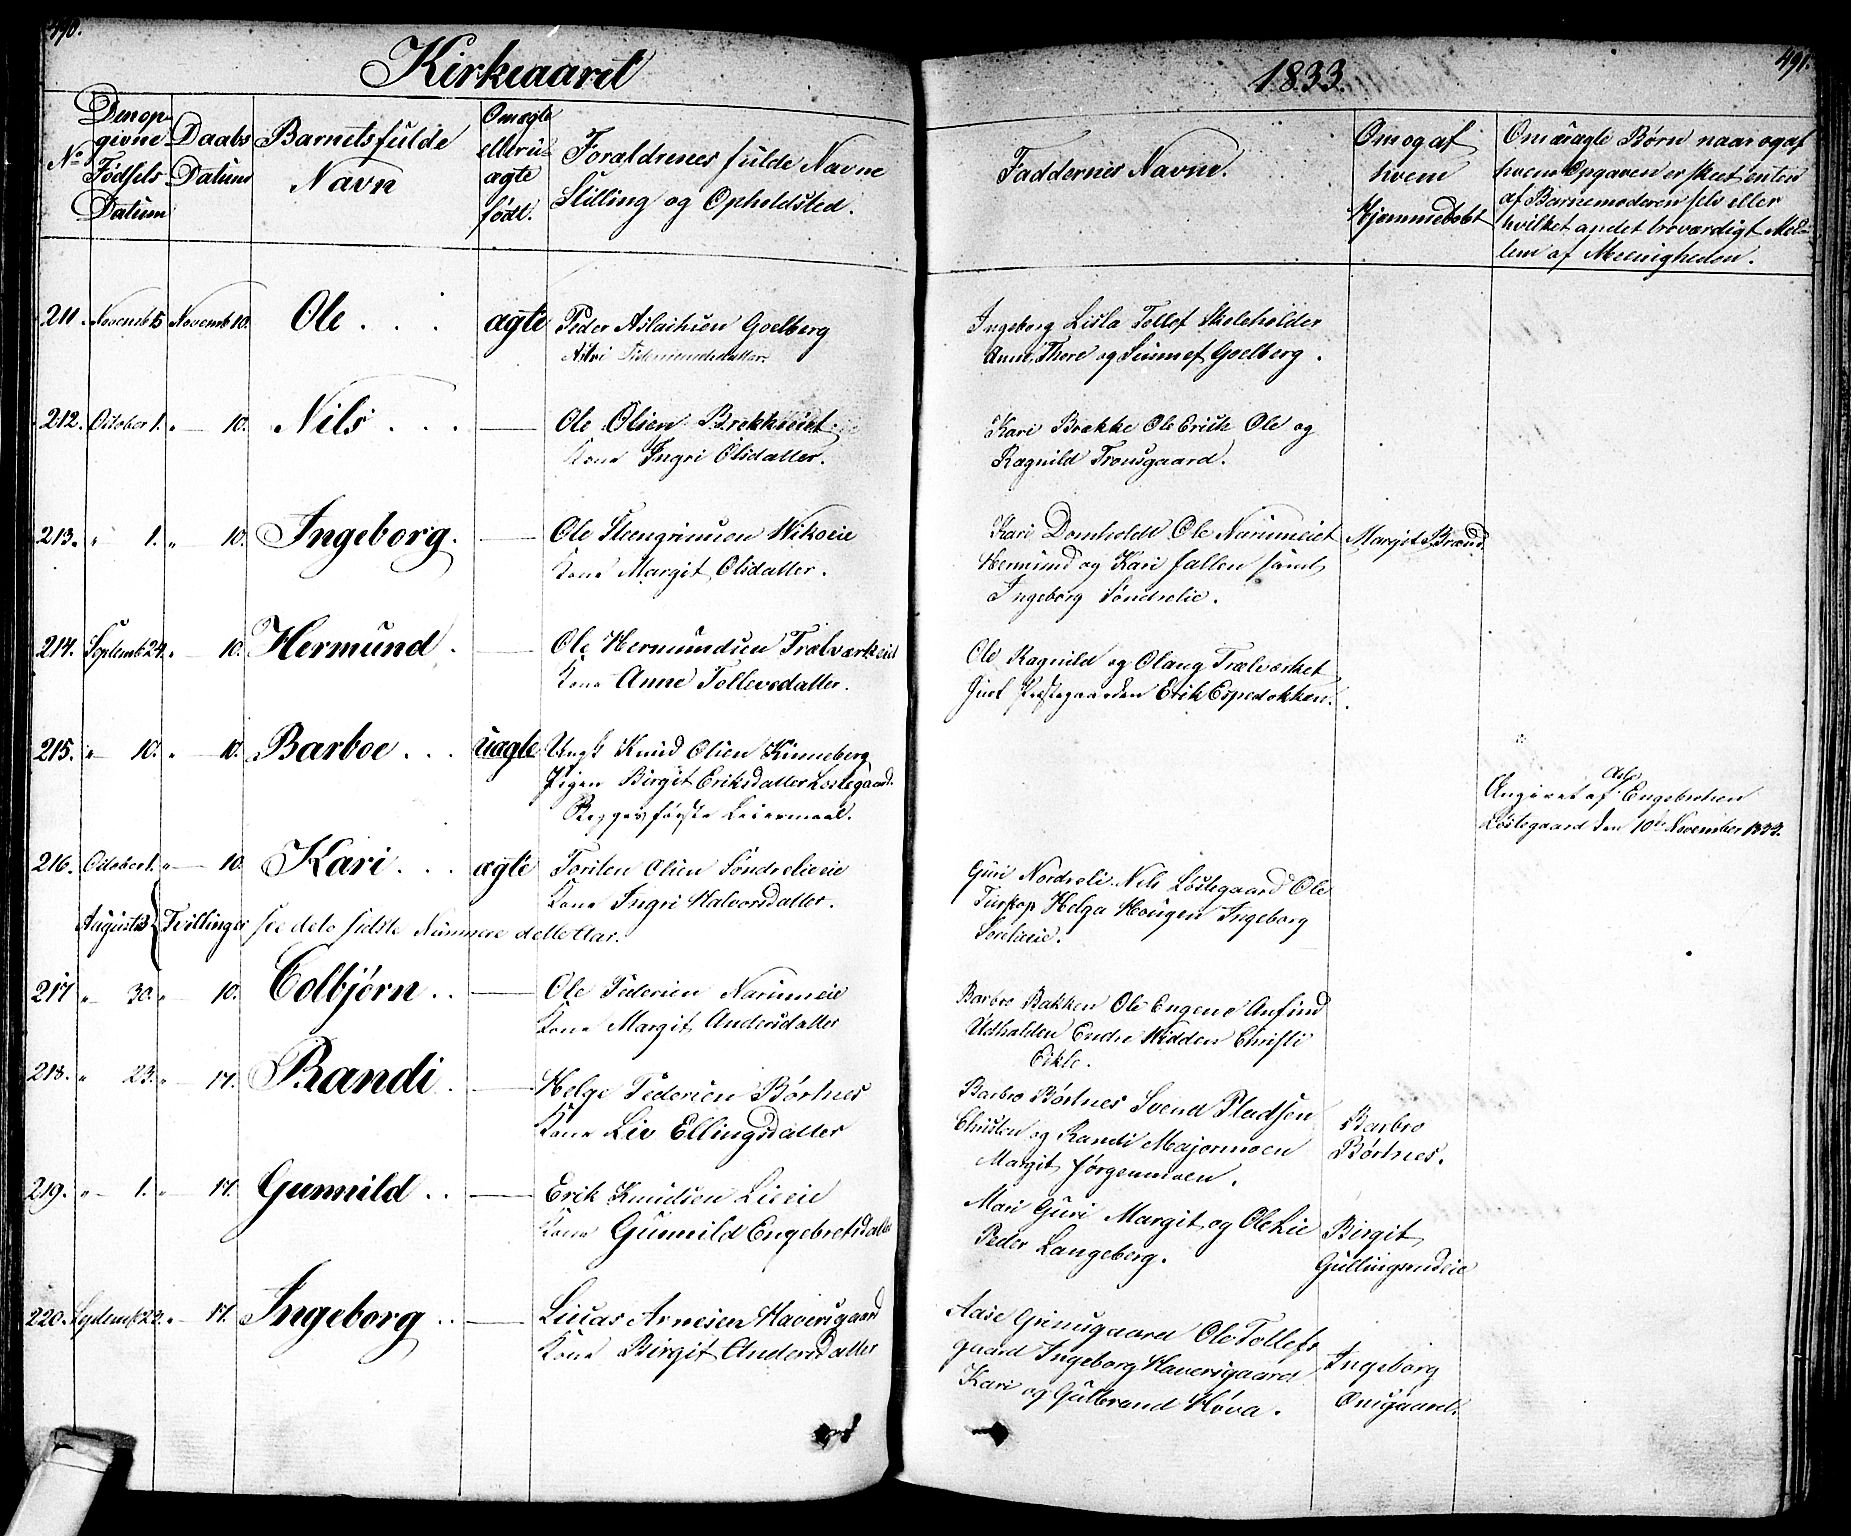 490.
Kirkeaaret
No
Den op-
givne
Fødsels
Datum
Daabs
Datum
Barnets fulde
Navn
Om ægte
eller u-
ægte
født.
Forældrenes fulde Navne
Stilling og Opholdsted.
211. Novemb 5 Novemb 10. Ole . . . ægte Peder Aslachsen Goelberg
212. October 1. " 10. Nils . . . Ole Olsen Brekkeeiet
Kone Ingri Olsdatter.
213. " 1. " 10. Ingeborg. Ole Steengrimsen Wikseie
Kone Margit Olsdatter.
214. Septemb 24. " 10. Hermund . Ole Hermundsen Trælværkeiet
Kone Anne Tollevsdatter.
215. " 10. " 10. Barboe . . . uægte Ungk Knud Olsen Kinneberg
Pigen Birgit Eriksdatter Løstegaard.
Begges første Leiermaal.
216. October 1. " 10. Kari . . . ægte Torsten Olsen Søndrelieeie
Kone Ingri Halvorsdatter.
August 3 Tvillinger see de to sidste Numere dette Aar.
217 " 30. " 10. Colbjørn . . Ole Pedersen Narumeie
Kone Margit Andersdatter
218. " 23. " 17. Randi . Helge Pedersen Børtnes
Kone Liv Ellingsdatter
219. " 1. " 17. Gunnild . . Erik Knudsen Lieeie
Kone Gunnild Engebretsdatter
220. Septemb 22. " 17. Ingeborg . . Lucas Arnesen Haversgaard
Kone Birgit Andersdatter
1833.
491.
Faddernes Navne.
Om og af
hvem
Hjemmedøbt
Om uægte Børn naar og af
hvem Opgaven er skeet enten
af Barnemoderen selv eller
hvilket andet troværdigt Med-
lem af Meenigheden.
Ingeborg Lisla Tollef Skoleholder
Anne Thore og Sunnef Goelberg.
Kari Brække Ole Erich Ole og
Ragnild Tronsgaard.
Kari Domholdt Ole Narumeiet Margit Brænd.
Hermund og Kari Fallen samt
Ingeborg Søndrelie.
Ole Ragnild og Olaug Trælverket
Præstegaarden Erik Espedokken.
Aslo
Angivet af Engebretsen
Løstegaard den 10de November 1833.
Guri Nordreli Nils Løstegaard Ole
Helga Hougen Ingeborg
Barbro Bakken Ole Engene Anfind
Ødhalden Endre Widden Christi
Eikle.
Barbro Børtnes Svend Pladsen
Christen og Randi Majormoen
Margit Jørgenmoen.
Barbro
Børtnes.
Mari Guri Margit og Ole Lie
Peder Langeberg.
Birgit
Gullingsrudeie
Aase Grimsgaard Ole Tollefs
gaard Ingeborg Haversgaard
Kari og Gulbrand Høva.
Ingeborg
Ønsgaard.